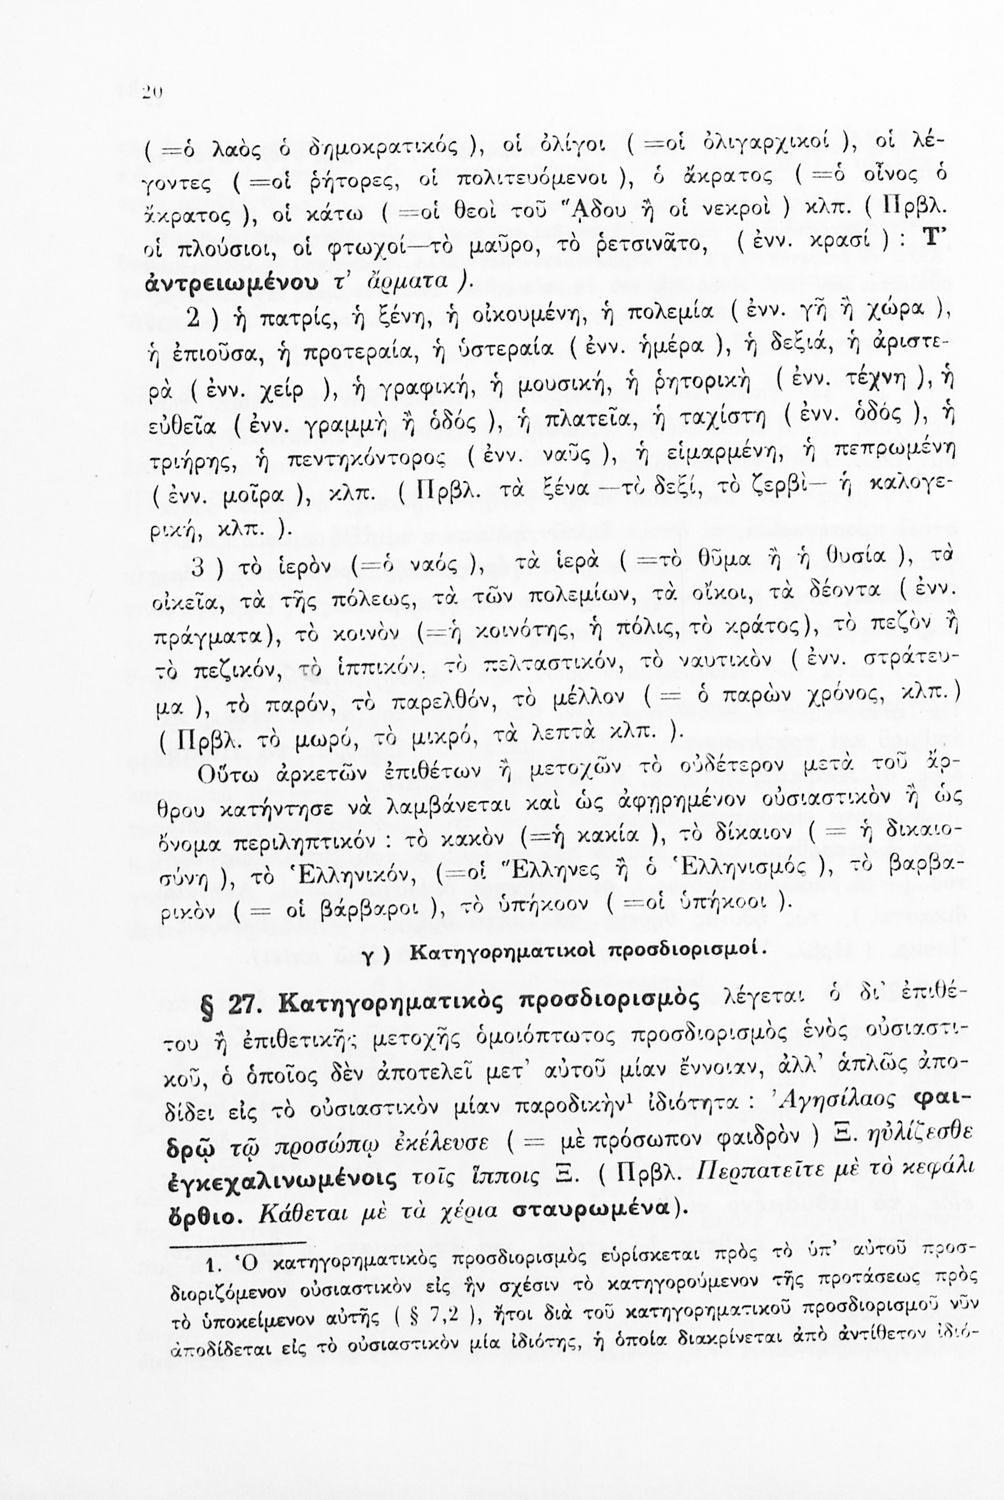 20
( =ὁ λαὸς ὁ δημοκρατικός ), οἱ ὀλίγοι ( =οἱ ὀλιγαρχικοί ), οἱ λέ-
γοντες ( =οἱ ῥήτορες, οἱ πολιτευόμενοι ), ὁ ἄκρατος ( =ὁ οἶνος ὁ
ἄκρατος ), οἱ κάτω ( =οἱ θεοὶ τοῦ Ἅδου ἢ οἱ νεκροὶ ) κλπ. ( Πρβλ.
οἱ πλούσιοι, οἱ φτωχοί—τὸ μαῦρο, τὸ ῥετσινᾶτο, ( ἐνν. κρασί ) : Τ’
ἀντρειωμένου τ’ ἄρματα ).
2 ) ἡ πατρίς, ἡ ξένη, ἡ οἰκουμένη, ἡ πολεμία ( ἐνν. γῆ ἢ χώρα ),
ἡ ἐπιοῦσα, ἡ προτεραία, ἡ ὑστεραία ( ἐνν. ἡμέρα ), ἡ δεξιά, ἡ ἀριστε-
ρὰ ( ἐνν. χείρ ), ἡ γραφική, ἡ μουσική, ἡ ῥητορικὴ ( ἐνν. τέχνη ), ἡ
εὐθεῖα ( ἐνν. γραμμὴ ἢ ὁδός ), ἡ πλατεῖα, ἡ ταχίστη ( ἐνν. ὁδός ), ἡ
τριήρης, ἡ πεντηκόντορος ( ἐνν. ναῦς ), ἡ εἱμαρμένη, ἡ πεπρωμένη
( ἐνν. μοῖρα ), κλπ. ( Πρβλ. τὰ ξένα —τὸ δεξί, τὸ ζερβὶ— ἡ καλογε-
ρική, κλπ. ).
3 ) τὸ ἱερὸν (=ὁ ναός ), τὰ ἱερὰ ( =τὸ θῦμα ἢ ἡ θυσία ), τὰ
οἰκεῖα, τὰ τῆς πόλεως, τὰ τῶν πολεμίων, τὰ οἴκοι, τὰ δέοντα ( ἐνν.
πράγματα), τὸ κοινὸν (=ἡ κοινότης, ἡ πόλις, τὸ κράτος), τὸ πεζὸν ἢ
τὸ πεζικόν, τὸ ἱππικόν, τὸ πελταστικόν, τὸ ναυτικὸν ( ἐνν. στράτευ-
μα ), τὸ παρόν, τὸ παρελθόν, τὸ μέλλον ( = ὁ παρὼν χρόνος, κλπ.)
( Πρβλ. τὸ μωρό, τὸ μικρό, τὰ λεπτὰ κλπ. ).
Οὕτω ἀρκετῶν ἐπιθέτων ἢ μετοχῶν τὸ οὐδέτερον μετὰ τοῦ ἄρ-
θρου κατήντησε νὰ λαμβάνεται καὶ ὡς ἀφηρημένον οὐσιαστικὸν ἢ ὡς
ὄνομα περιληπτικόν : τὸ κακὸν (=ἡ κακία ), τὸ δίκαιον ( = ἡ δικαιο-
σύνη ), τὸ Ἑλληνικόν, (=οἱ Ἕλληνες ἢ ὁ Ἑλληνισμός ), τὸ βαρβα-
ρικὸν ( = οἱ βάρβαροι ), τὸ ὑπήκοον ( =οἱ ὑπήκοοι ).
γ ) Κατηγορηματικοὶ προσδιορισμοί.
§ 27. Κατηγορηματικὸς προσδιορισμὸς λέγεται ὁ δι’ ἐπιθέ-
του ἢ ἐπιθετικῆς μετοχῆς ὁμοιόπτωτος προσδιορισμὸς ἑνὸς οὐσιαστι-
κοῦ, ὁ ὁποῖος δὲν ἀποτελεῖ μετ’ αὐτοῦ μίαν ἔννοιαν, ἀλλ’ ἁπλῶς ἀπο-
δίδει εἰς τὸ οὐσιαστικὸν μίαν παροδικὴν¹ ἰδιότητα : Ἀγησίλαος φαι-
δρῷ τῷ προσώπῳ ἐκέλευσε ( = μὲ πρόσωπον φαιδρὸν ) Ξ. ηὐλίζεσθε
ἐγκεχαλινωμένοις τοῖς ἵπποις Ξ. ( Πρβλ. Περπατεῖτε μὲ τὸ κεφάλι
ὄρθιο. Κάθεται μὲ τὰ χέρια σταυρωμένα).
1. Ὁ κατηγορηματικὸς προσδιορισμὸς εὑρίσκεται πρὸς τὸ ὑπ’ αὐτοῦ προσ-
διοριζόμενον οὐσιαστικὸν εἰς ἣν σχέσιν τὸ κατηγορούμενον τῆς προτάσεως πρὸς
τὸ ὑποκείμενον αὐτῆς ( § 7,2 ), ἤτοι διὰ τοῦ κατηγορηματικοῦ προσδιορισμοῦ νῦν
ἀποδίδεται εἰς τὸ οὐσιαστικὸν μία ἰδιότης, ἡ ὁποία διακρίνεται ἀπὸ ἀντίθετον ἰδιό-